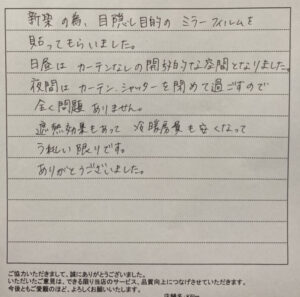 新築の為、目隠し目的のミラーフィルムを
貼ってもらいました。
日昼はカーテンなしの開放的な空間となりました。
夜間はカーテン、シャッターを閉めて過ごすので
全く問題ありません。
遮熱効果もあって冷暖房費も安くなって
うれしい限りです。
ありがとうございました。
ご協力いただきまして、誠にありがとうございました。
いただいたご意見は、できる限り当店のサービス、品質向上につなげさせていただきます。
今後ともご愛顧のほど、よろしくお願いいたします。